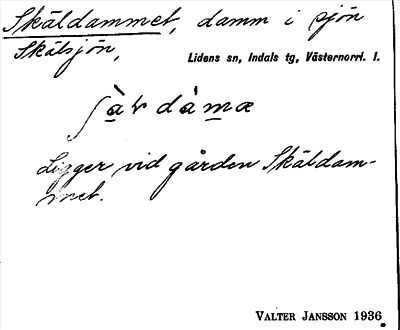 Skäldammet, damm i sjön
Skälsjön,
Lidens sn, Indals tg, Västernorrl. l.
Ligger vid gården Skäldam-
met.
VALTER JANSSON 1936